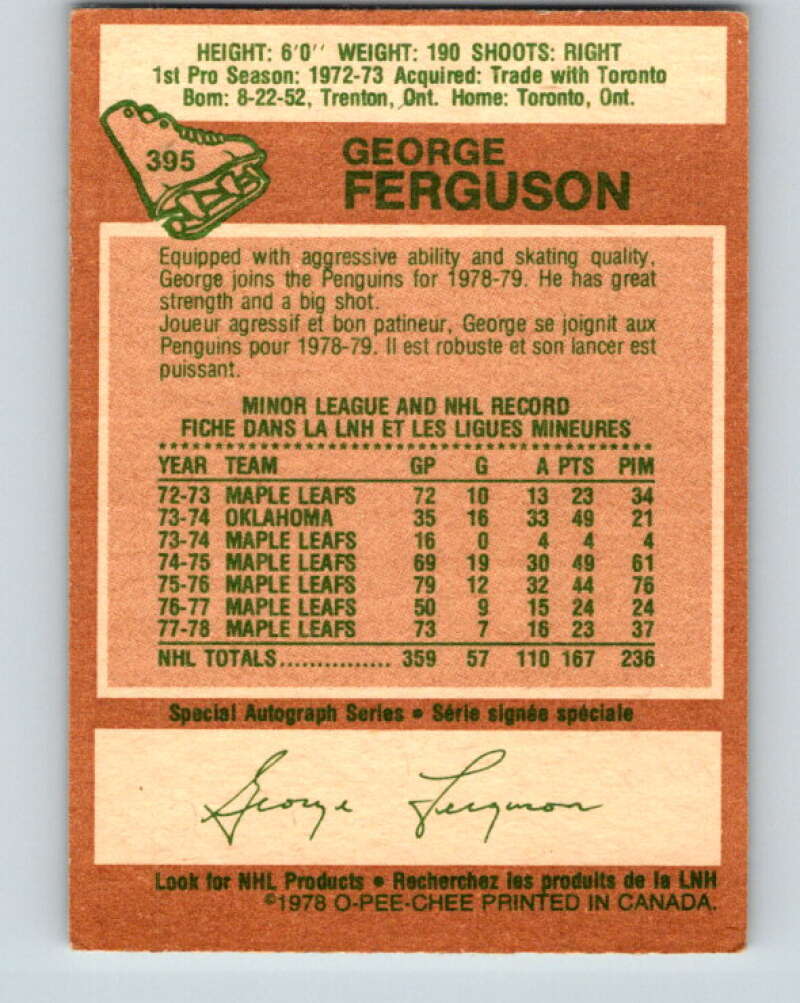 HEIGHT: 6'0'' WEIGHT: 190 SHOOTS: RIGHT
1st Pro Season: 1972-73 Acquired: Trade with Toronto
Born: 8-22-52, Trenton, Ont. Home: Toronto, Ont.
395
GEORGE
FERGUSON
Equipped with aggressive ability and skating quality,
George joins the Penguins for 1978-79. He has great
strength and a big shot.
Joueur agressif et bon patineur, George se joignit aux
Penguins pour 1978-79. Il est robuste et son lancer est
puissant.
MINOR LEAGUE AND NHL RECORD
FICHE DANS LA LNH ET LES LIGUES MINEURES
YEAR TEAM GP G A PTS PIM
72-73 MAPLE LEAFS 72 10 13 23 34
73-74 OKLAHOMA 35 16 33 49 21
73-74 MAPLE LEAFS 16 0 4 4 4
74-75 MAPLE LEAFS 69 19 30 49 61
75-76 MAPLE LEAFS 79 12 32 44 76
76-77 MAPLE LEAFS 50 9 15 24 24
77-78 MAPLE LEAFS 73 7 16 23 37
NHL TOTALS................ 359 57 110 167 236
Special Autograph Series • Série signée spéciale
George Ferguson
Look for NHL Products • Recherchez les produits de la LNH
©1978 O-PEE-CHEE PRINTED IN CANADA.